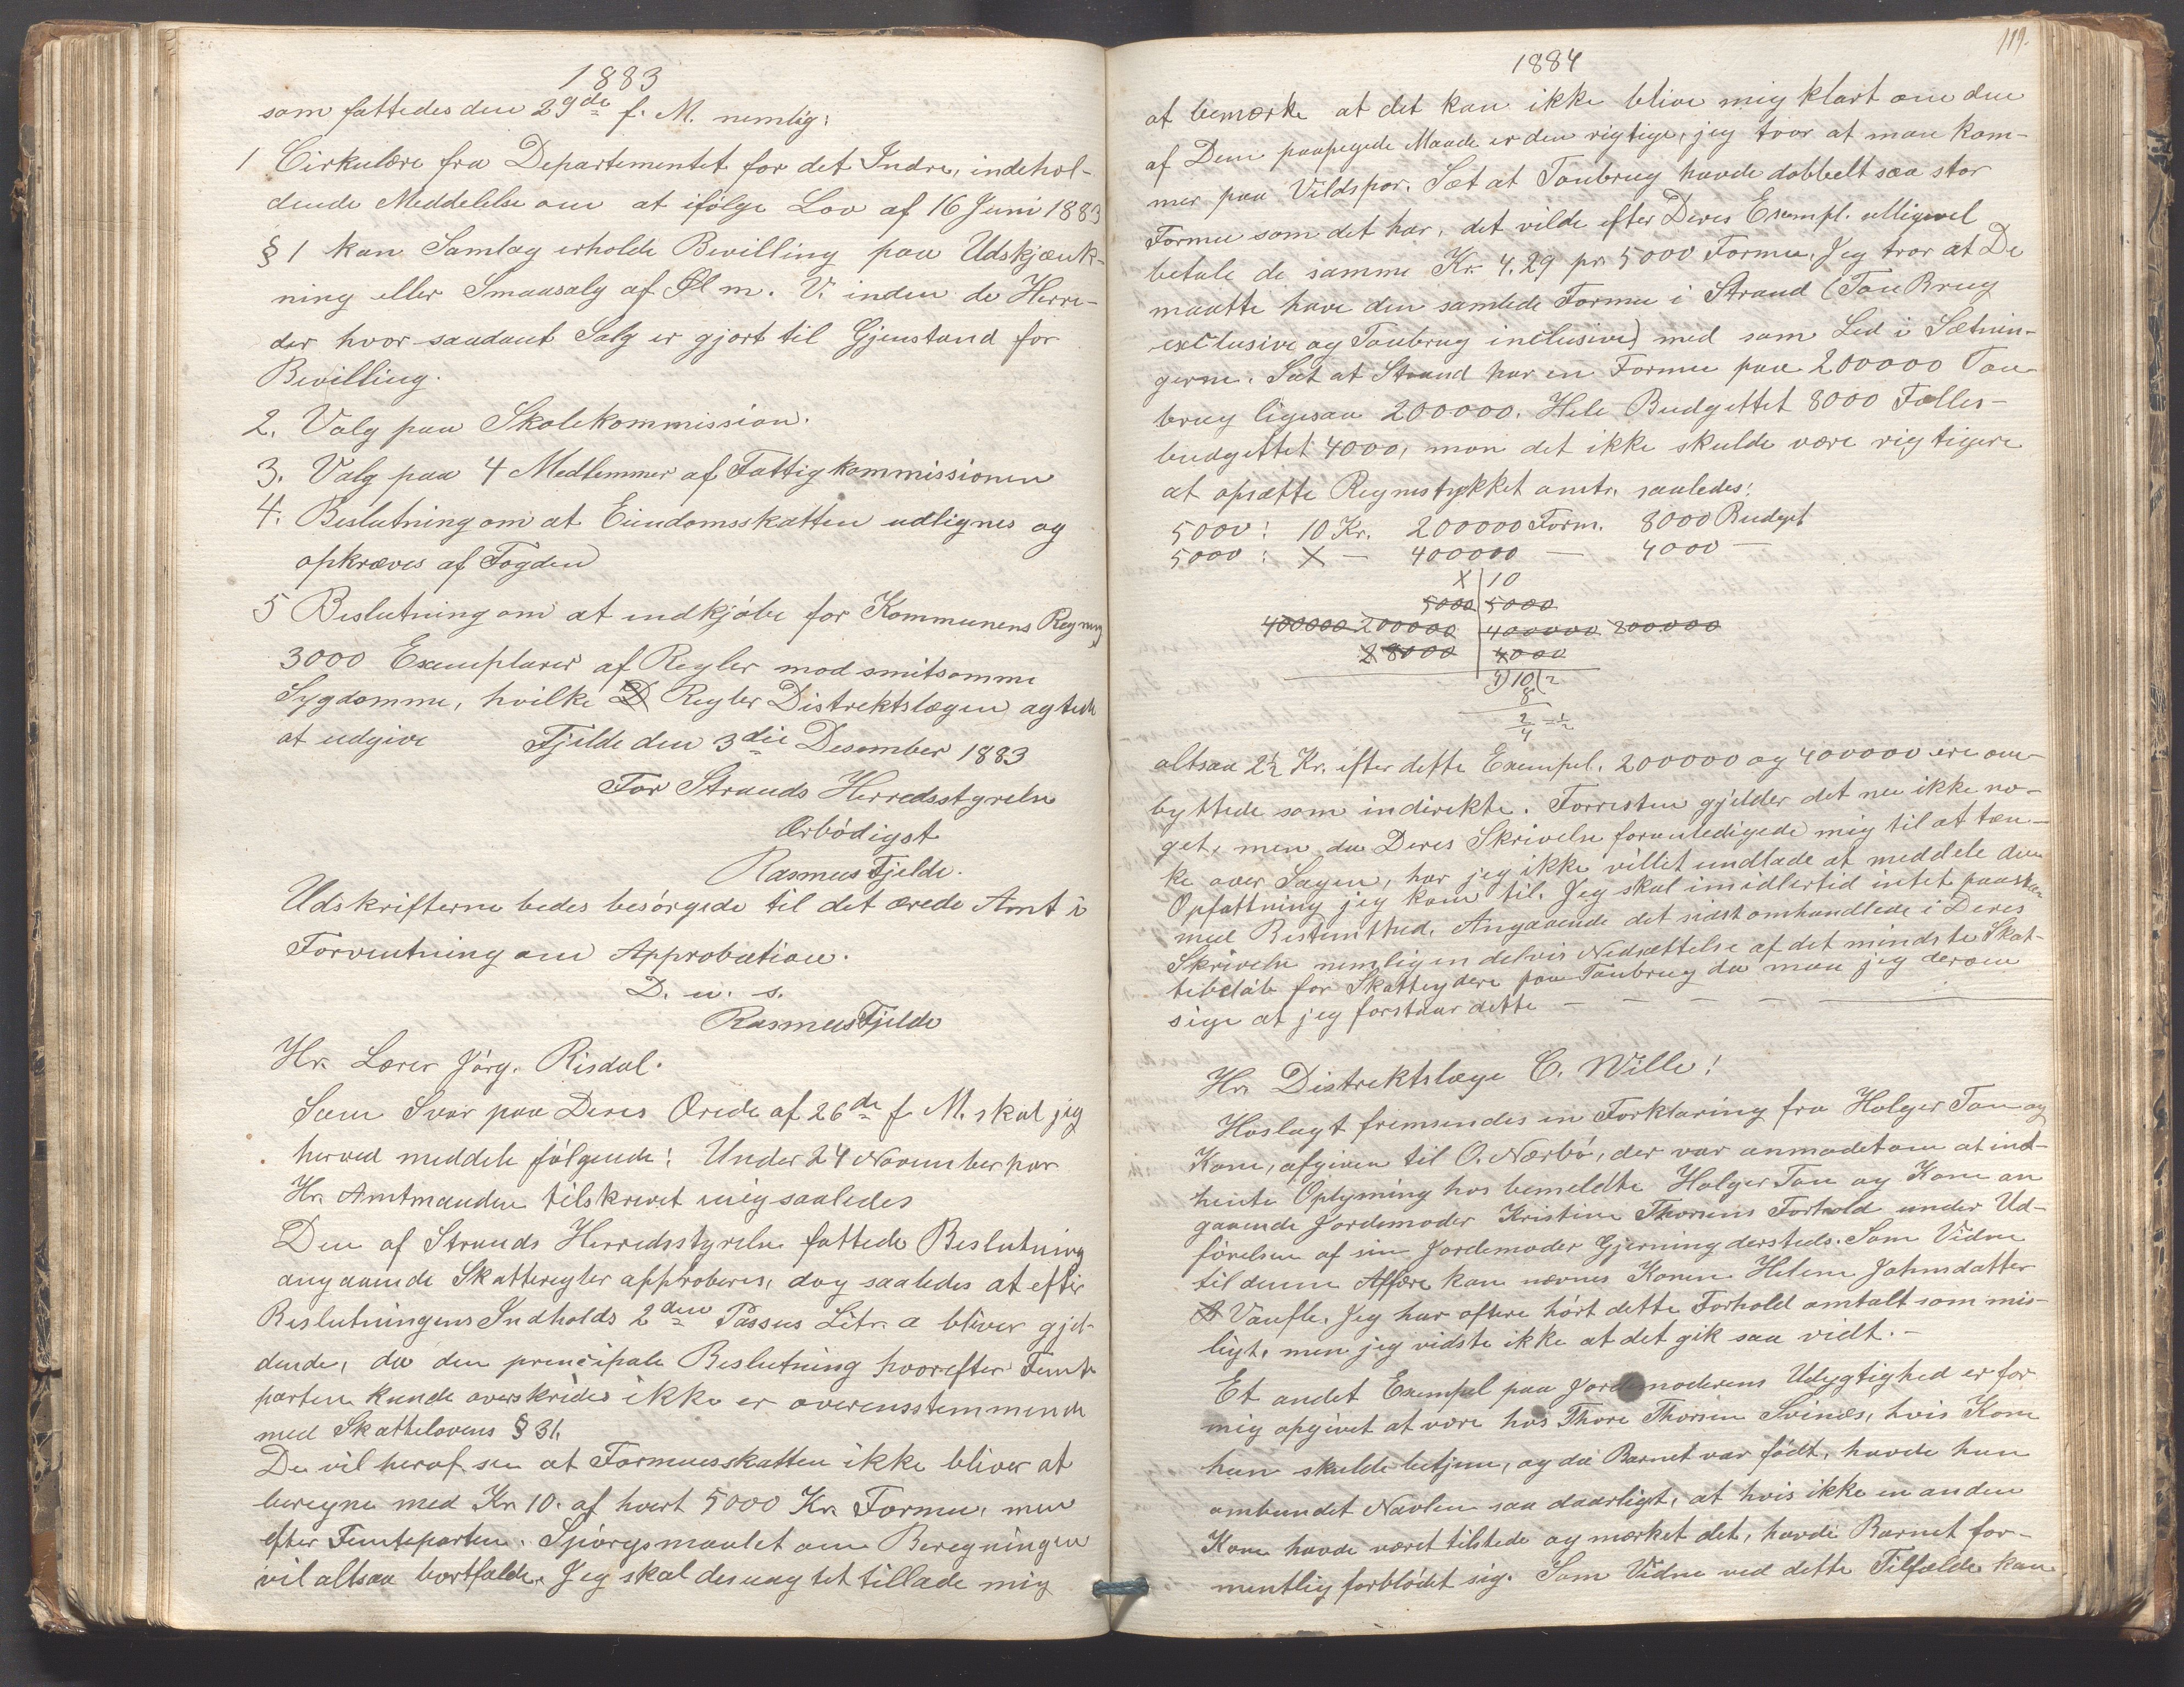 1883
som fattedes den 29de f. M. nemlig:
1 Cirkulære fra Departementet for det Indre, indehol-
dende Meddelelse om at ifölge Lov af 16 Juni 1883
§ 1 kan Samlag erholde Bevilling paa Udskjænk-
ning eller Smaasalg af Øl m. V. inden de Herre-
der hvor saadant Salg er gjort til Gjenstand for
Bevilling.
2. Valg paa Skolekommission.
3. Valg paa 4 Medlemmer af Fattigkommissionen
4. Beslutning om at Eiendomsskatten udlignes og
opkræves af Fogden
5 Beslutning om at indkjöbe for Kommunens Regning
3000 Exemplarer af Regler mod smitsomme
Sygdomme, hvilke D Regler Distrektslægen agtede
at udgive Fjelde den 3die Desember 1883
For Strands Herredsstyrelse
Ærbödigst
Rasmus Fjelde.
Udskrifterne bedes besörgede til det ærede Amt i
Forventning om Approbation.
D. u. s.
Rasmus Fjelde
Hr. Lærer Jörg. Risdal.
Som Svar paa Deres Ærede af 26de f. M. skal jeg
herved meddele fölgende: Under 24 November har
Hr. Amtmanden tilskrevet mig saaledes
Den af Strands Herredsstyrelse fattede Beslutning
angaaende Skatteregler approberes, dog saaledes at efter
Beslutningens Indholds 2den Passus Litr. a bliver gjel-
dende, da den principale Beslutning hvorefter Femte
parten kunde overskrides ikke er overensstemmende
med Skattelovens § 31.
De vil heraf se at Formuesskatten ikke bliver at
beregne med Kr. 10. af hvert 5000 Kr. Formue, men
efter Femteparten. Spörgsmaalet om Beregningen
vil altsaa bortfalde. Jeg skal desuagtet tillade mig
119.
1884
at bemærke at det kan ikke blive mig klart om den
af Dem paapegede Maade er den rigtige, jeg tror at man kom-
mer paa Vildspor. Sæt at Taubrug havde dobbelt saa stor
Formue som det har, det vilde efter Deres Exempl. alligevel
betale de samme Kr. 4.29 pr. 5000 Formue. Jeg tror at De
maatte have den samlede Formue i Strand (Tau Brug
exclusive og Taubrug inclusive) med som Led i Sætnin-
gerne. Sæt at Strand har en Formue paa 200000 Tau
brug ligesaa 200000. Hele Budgettet 8000 Fælles-
budgettet 4000, mon det ikke skulde være rigtigere
at opsætte Regnestykket omtr. saaledes:
5000 : 10 Kr. 200000 Form. 8000 Budget
5000 : X — 400000 — 4000 —
X | 10
5000 | 5000
400000 200000 | 400000 200000
2 8000 | 4000
4) 10 (2
8
2/4 = 1/2
altsaa 2½ Kr. efter dette Exempel. 200000 og 400000 ere om-
byttede som indirekte. Forresten gjelder det nu ikke no-
get, men da Deres Skrivelse foranledigede mig til at tæn-
ke over Sagen, har jeg ikke villet undlade at meddele den
Opfattning jeg kom til. Jeg skal imidlertid intet paastaa
med Bestemthed. Angaaende det sidst omhandlede i Deres
Skrivelse nemlig en delvis Nedsættelse af det mindste Skat-
tebelöb for Skatteydere paa Taubrug da maa jeg derom
sige at jeg forstaar dette — — — —
Hr. Distrektslæge C. Wille!
Hoslagt fremsendes en Forklaring fra Holger Tau og
Kone, afgiven til O. Nærbö, der var anmodet om at ind-
hente Oplysning hos bemeldte Holger Tau og Kone an
gaaende Jordemoder Kristine Thorsens Forhold under Ud-
förelsen af sin Jordemoder Gjerning dersteds. Som Vidne
til denne Affære kan nævnes Konen Helene Johnsdatter
Jeg har oftere hört dette Forhold omtalt som mis-
ligt, men jeg vidste ikke at det gik saa vidt. —
Et andet Exempel paa Jordemoderens Udygtighed er for
mig opgivet at være hos Thore Thorsen Svines, hvis Kone
hun skulde betjene, og da Barnet var födt, havde hun
ombundet Navlen saa daarligt, at hvis ikke en anden
Kone havde været tilstede og mærket det, havde Barnet for-
mentlig forblödt sig. Som Vidne ved dette Tilfælde kan